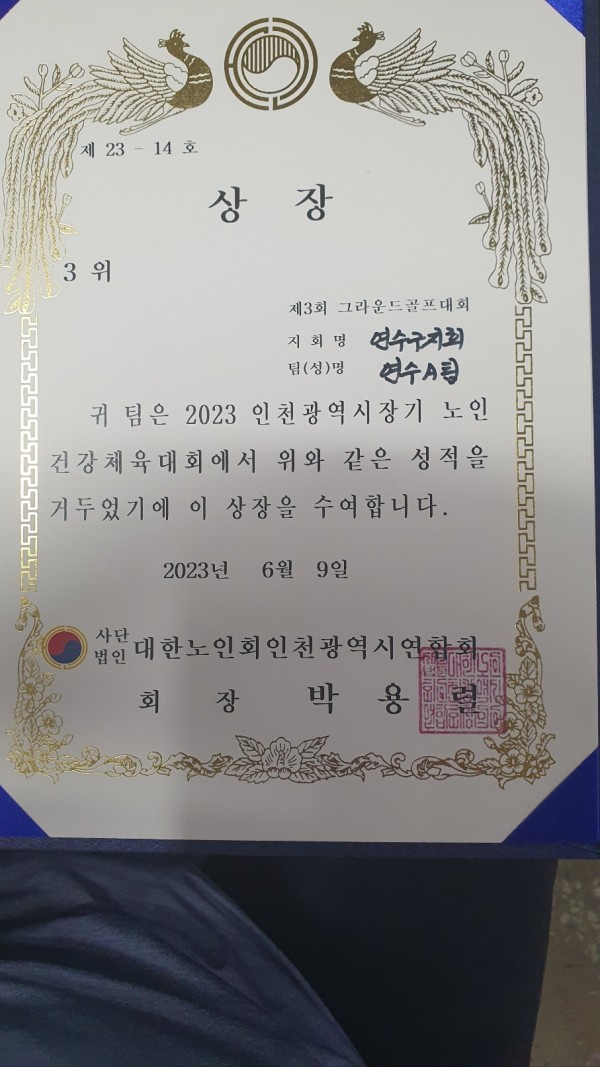 제 23 - 14 호
상 장
3 위
제3회 그라운드골프대회
지 회 명 연수구지회
팀(성)명 연수A팀
귀 팀은 2023 인천광역시장기 노인
건강체육대회에서 위와 같은 성적을
거두었기에 이 상장을 수여합니다.
2023년 6월 9일
사단
법인 대한노인회인천광역시연합회
회 장 박 용 렬